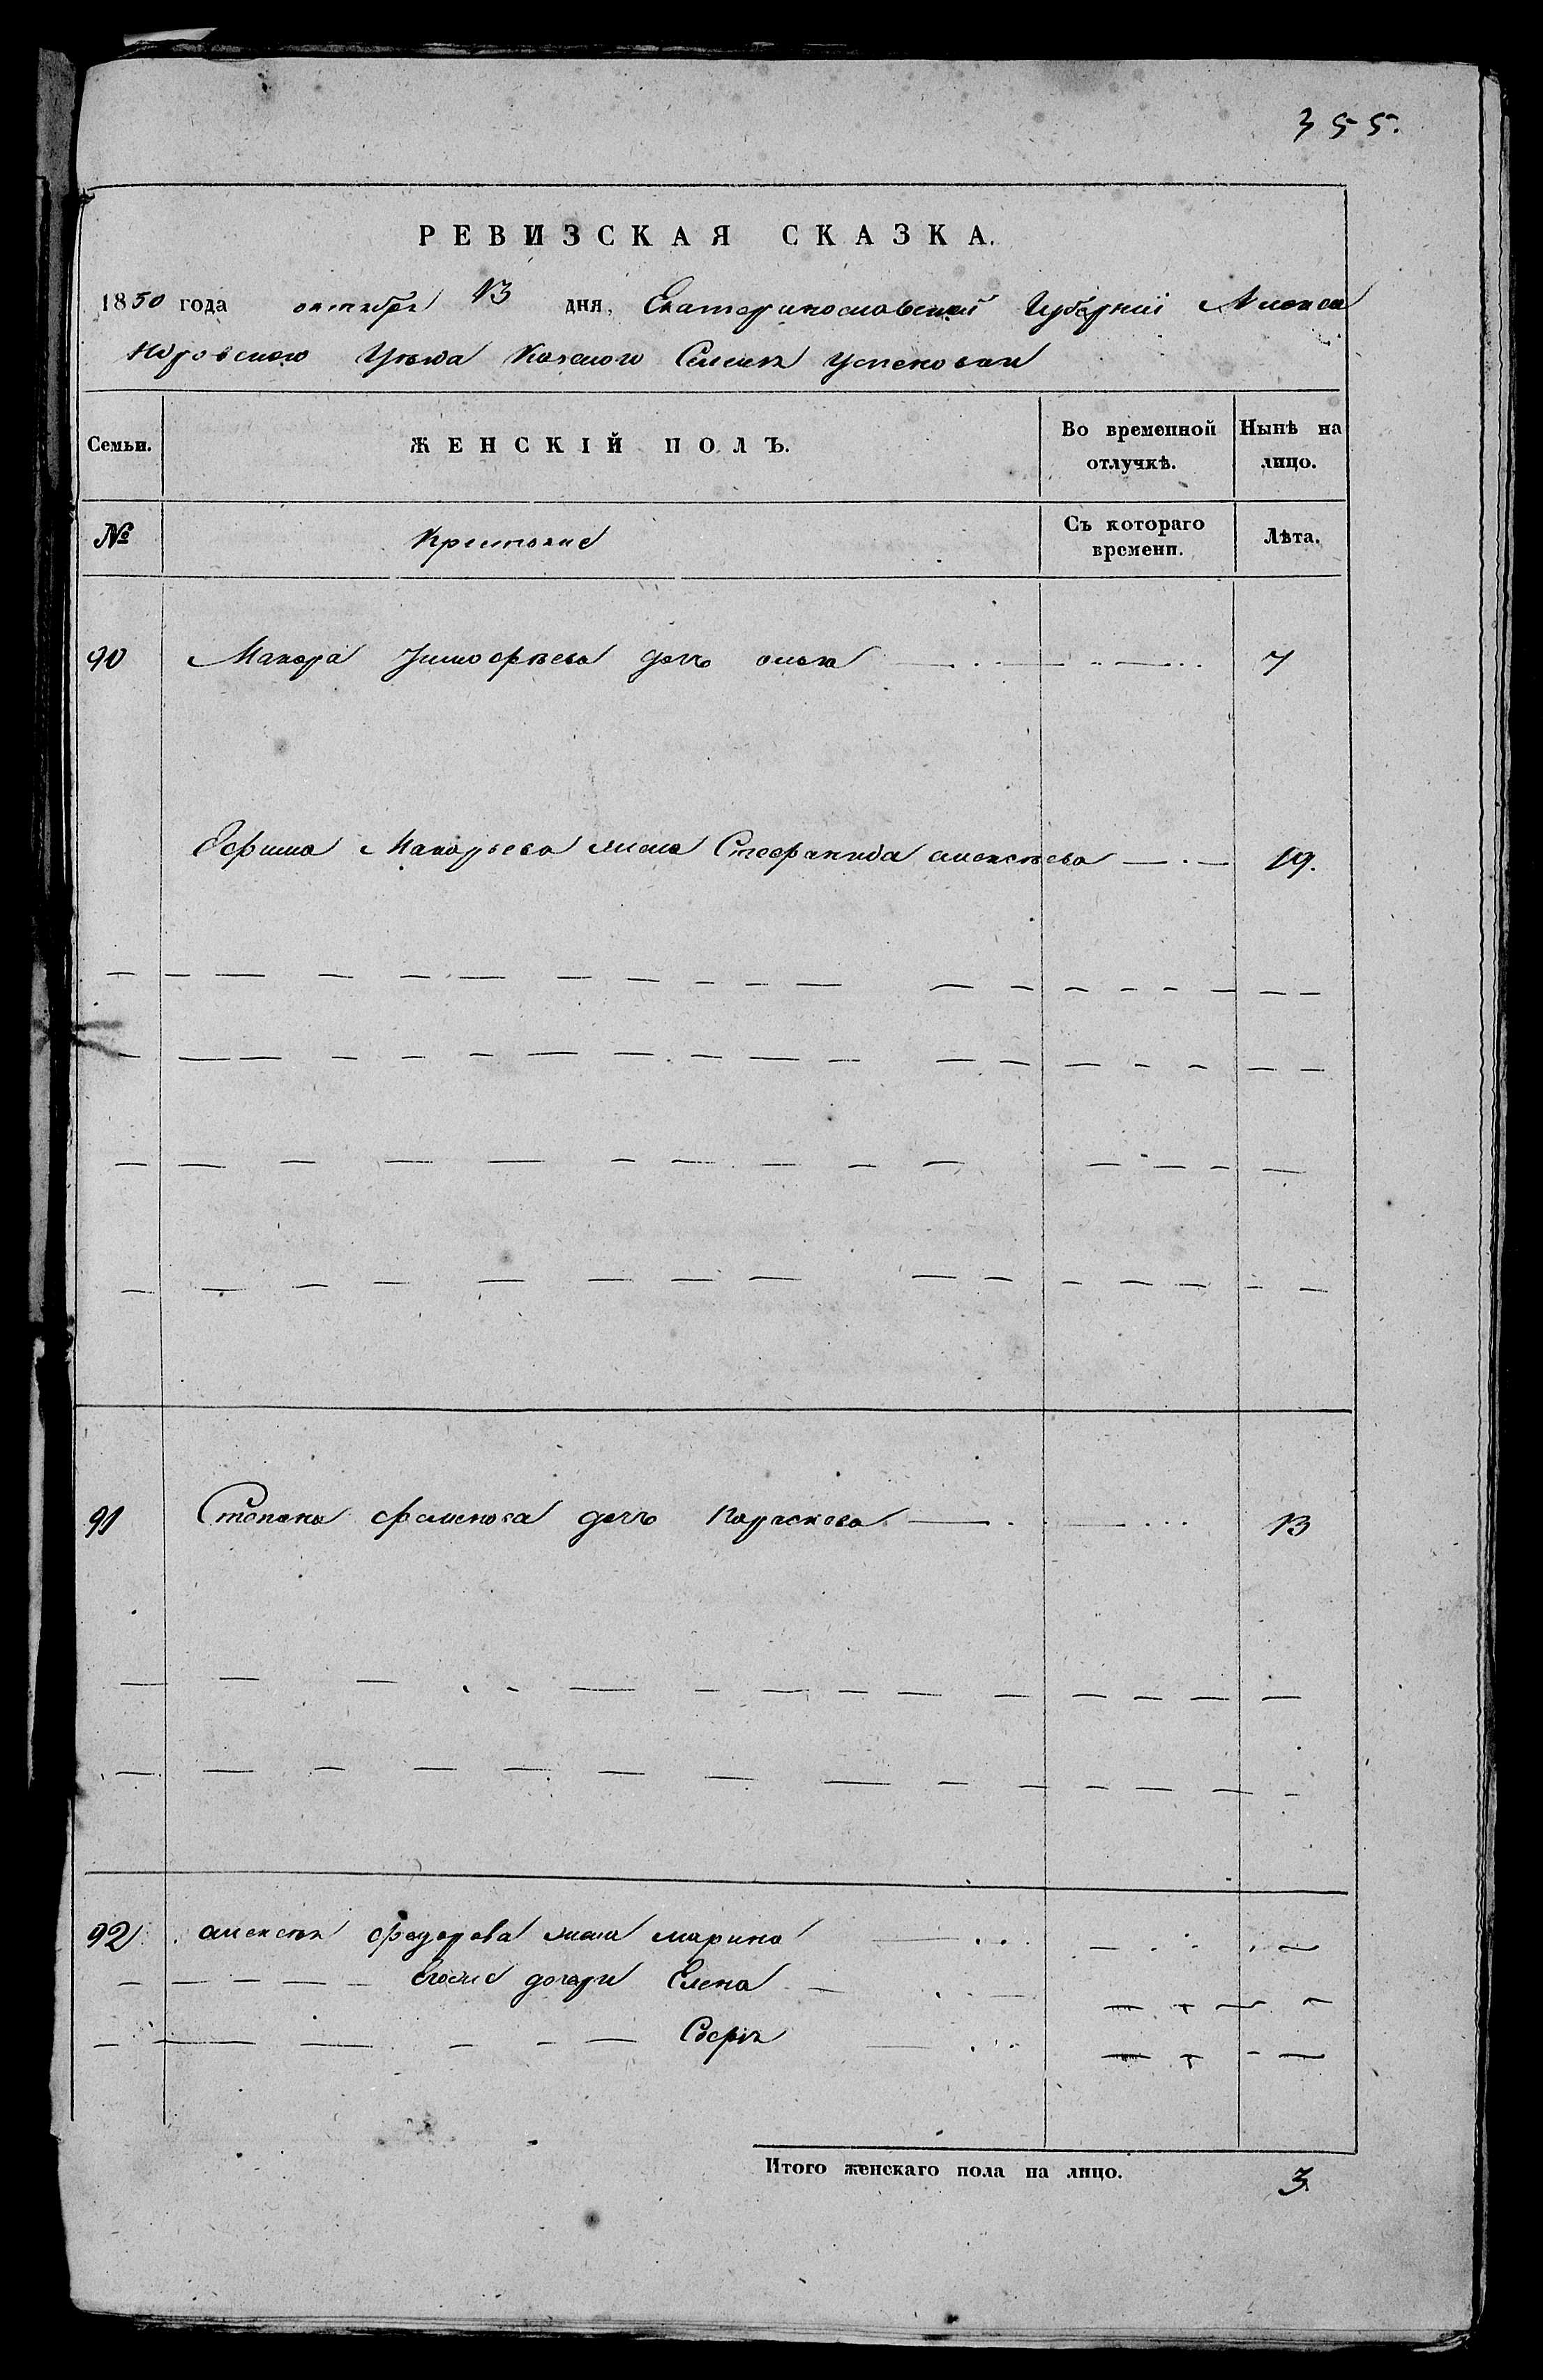 355.
РЕВИЗСКАЯ СКАЗКА.
1850 года октября 13 дня, Екатеринославской Губернии Алекса
ндровского Уѣзда Казеного Селенія Успеновки
Семьи. ЖЕНСКІЙ ПОЛЪ. Во временной отлучкѣ. Нынѣ на лицо.
№ Крестьяне Съ котораго времени. Лѣта.
90 Макара Тимофѣева дочь 7
Ефима Макарьева жена Стефанида алексѣева 19.
91 Степана фоменова дочь Параскева 13
92 алексѣя федорова жена марина
Егоже дочери Елена
Софія
Итого женскаго пола на лицо. 3